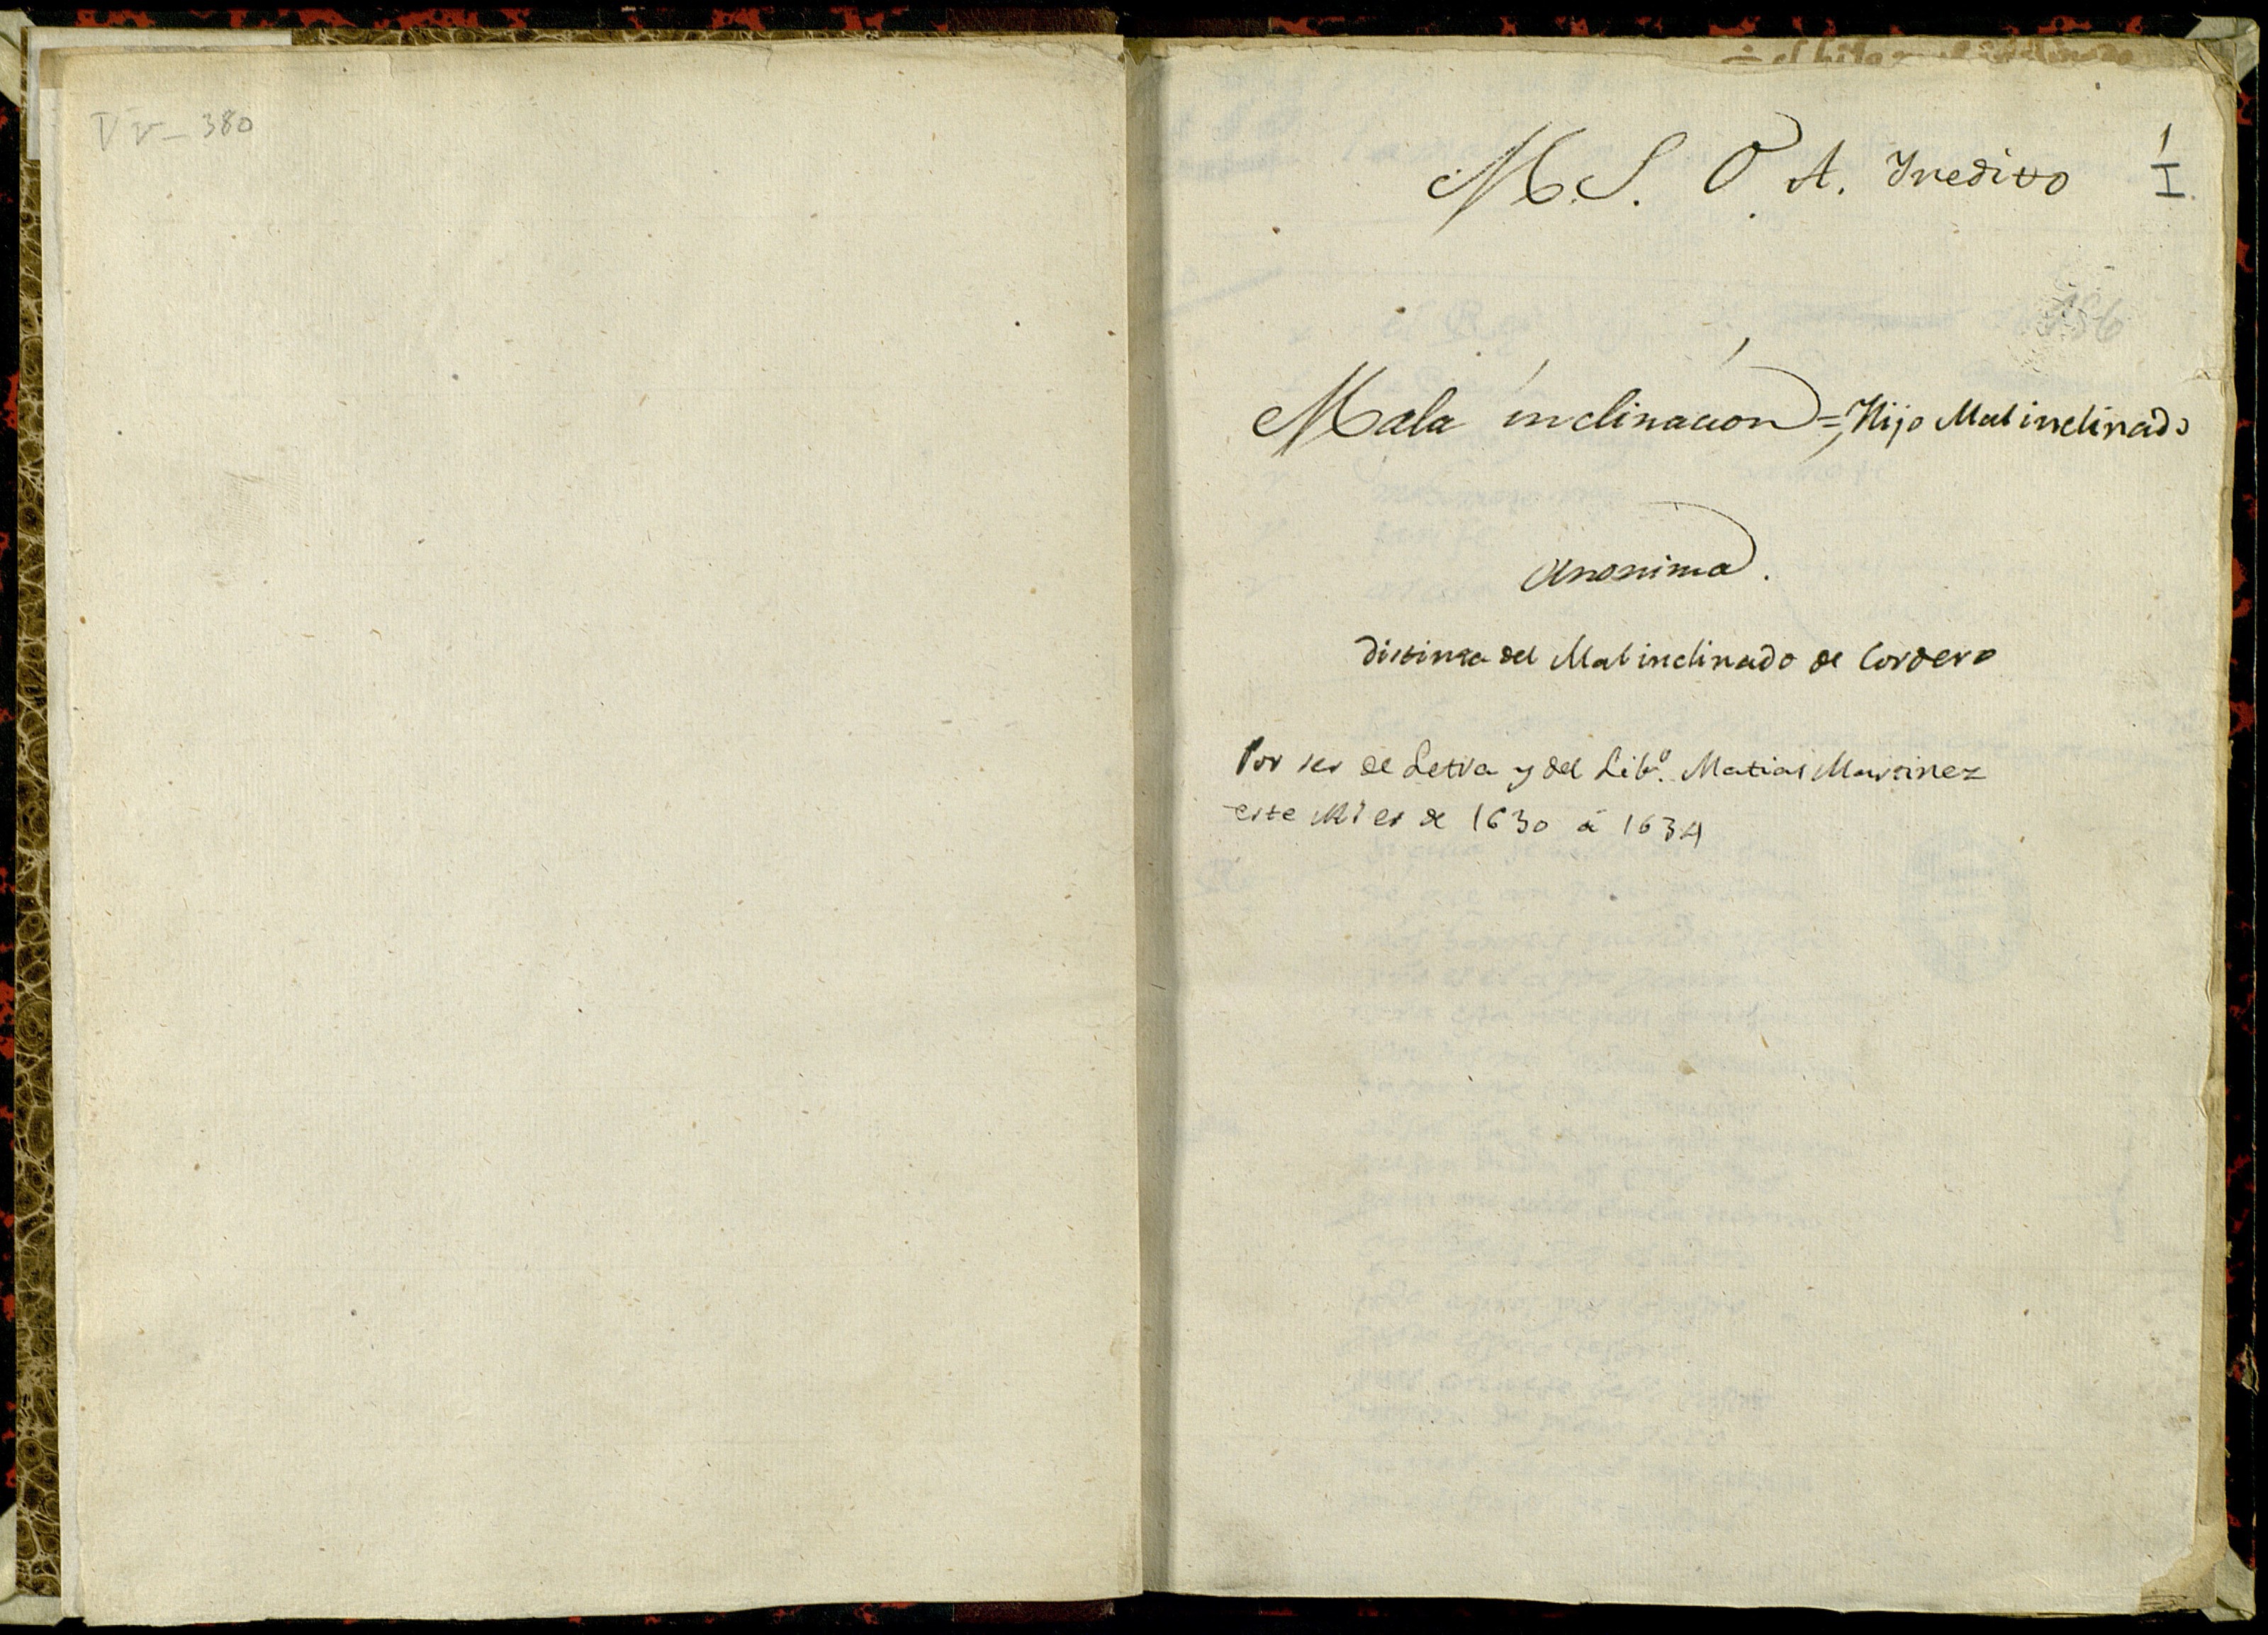 Vv_ 380
M.S. O. A. Inedito
1
I
Mala inclinacion = Hijo Mal inclinado
Anonima.
distinta del Mal inclinado de Cordero
Por ser de Letra y del Lib.º Matias Martinez
este Ms es de 1630 á 1634